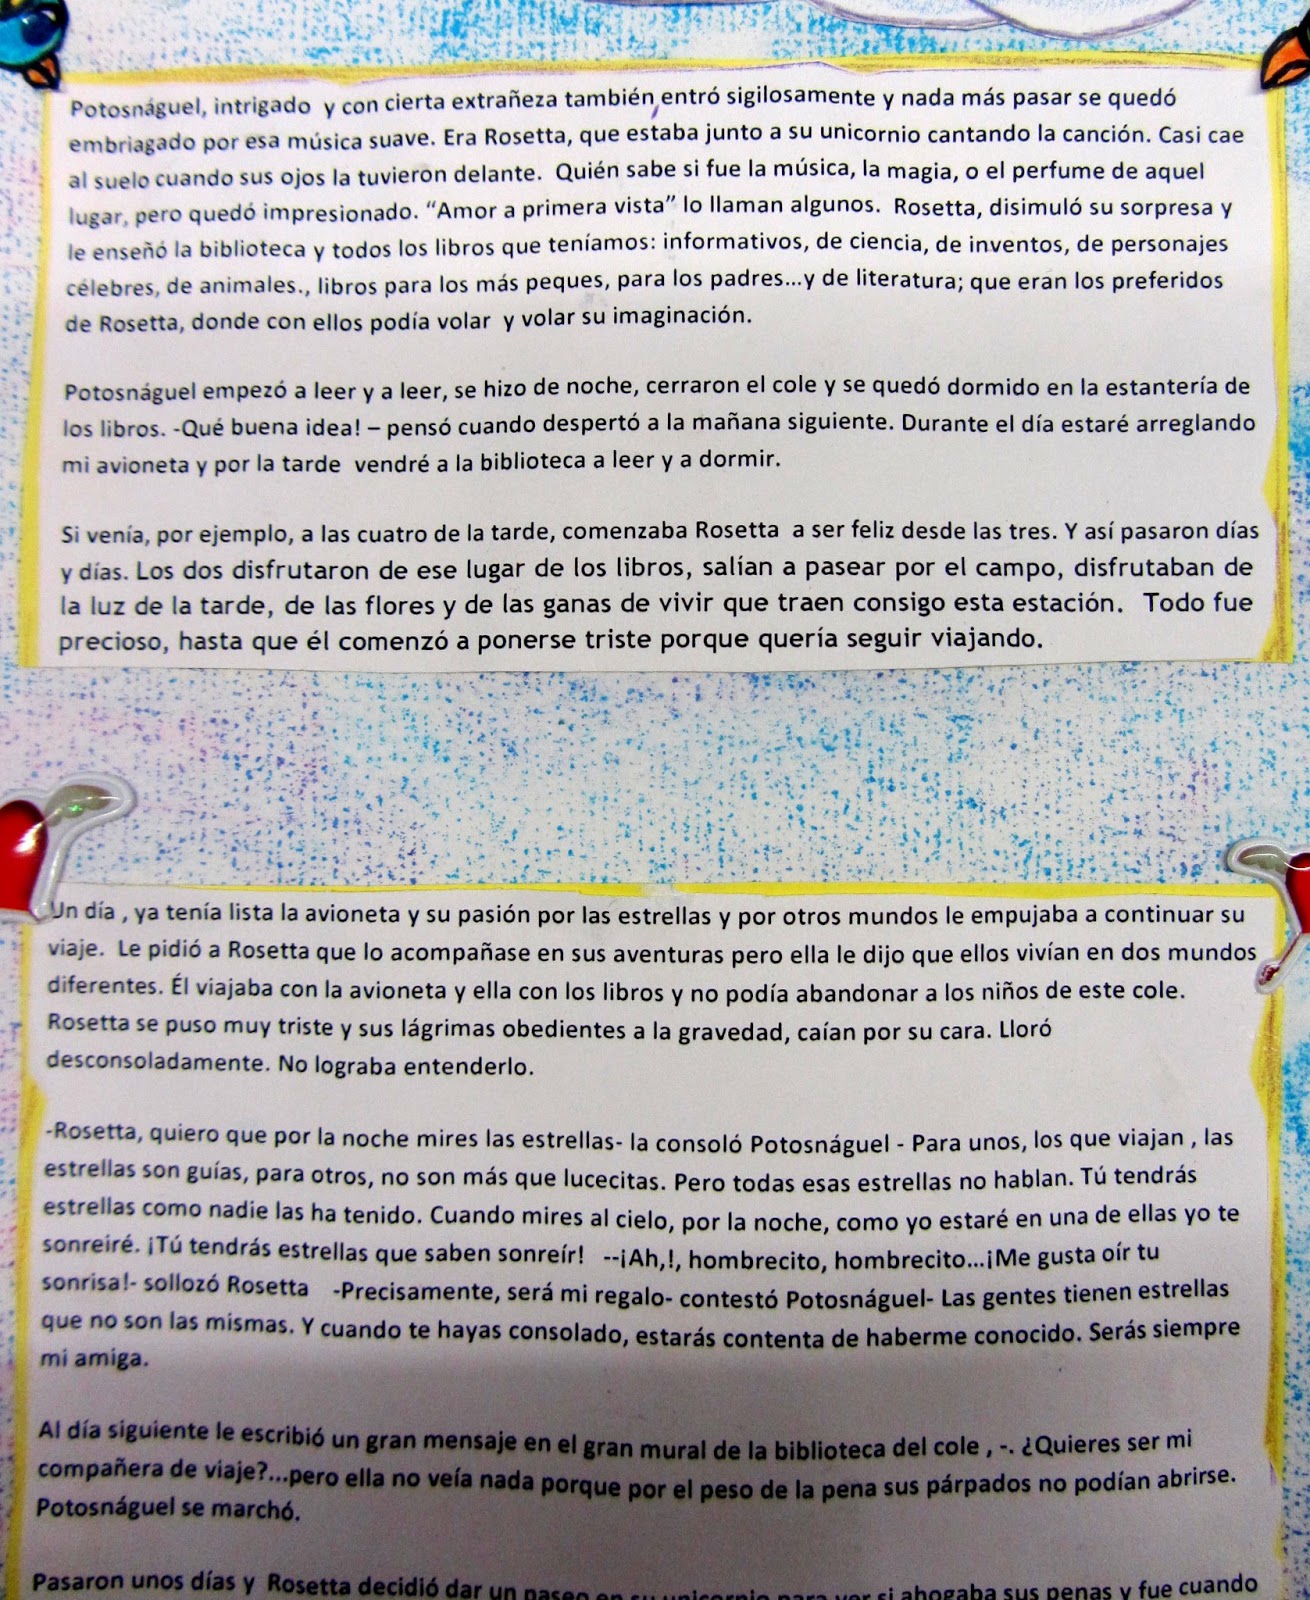 Potosnáguel, intrigado  y con cierta extrañeza también entró sigilosamente y nada más pasar se quedó
embriagado por esa música suave. Era Rosetta, que estaba junto a su unicornio cantando la canción. Casi cae
al suelo cuando sus ojos la tuvieron delante.  Quién sabe si fue la música, la magia, o el perfume de aquel
lugar, pero quedó impresionado. “Amor a primera vista” lo llaman algunos.  Rosetta, disimuló su sorpresa y
le enseñó la biblioteca y todos los libros que teníamos: informativos, de ciencia, de inventos, de personajes
célebres, de animales., libros para los más peques, para los padres...y de literatura; que eran los preferidos
de Rosetta, donde con ellos podía volar  y volar su imaginación.
Potosnáguel empezó a leer y a leer, se hizo de noche, cerraron el cole y se quedó dormido en la estantería de
los libros. -Qué buena idea! – pensó cuando despertó a la mañana siguiente. Durante el día estaré arreglando
mi avioneta y por la tarde  vendré a la biblioteca a leer y a dormir.
Si venía, por ejemplo, a las cuatro de la tarde, comenzaba Rosetta  a ser feliz desde las tres. Y así pasaron días
y días. Los dos disfrutaron de ese lugar de los libros, salían a pasear por el campo, disfrutaban de
la luz de la tarde, de las flores y de las ganas de vivir que traen consigo esta estación.   Todo fue
precioso, hasta que él comenzó a ponerse triste porque quería seguir viajando.
Un día , ya tenía lista la avioneta y su pasión por las estrellas y por otros mundos le empujaba a continuar su
viaje.  Le pidió a Rosetta que lo acompañase en sus aventuras pero ella le dijo que ellos vivían en dos mundos
diferentes. Él viajaba con la avioneta y ella con los libros y no podía abandonar a los niños de este cole.
Rosetta se puso muy triste y sus lágrimas obedientes a la gravedad, caían por su cara. Lloró
desconsoladamente. No lograba entenderlo.
-Rosetta, quiero que por la noche mires las estrellas- la consoló Potosnáguel - Para unos, los que viajan , las
estrellas son guías, para otros, no son más que lucecitas. Pero todas esas estrellas no hablan. Tú tendrás
estrellas como nadie las ha tenido. Cuando mires al cielo, por la noche, como yo estaré en una de ellas yo te
sonreiré. ¡Tú tendrás estrellas que saben sonreír!   --¡Ah,!, hombrecito, hombrecito...¡Me gusta oír tu
sonrisa!- sollozó Rosetta    -Precisamente, será mi regalo- contestó Potosnáguel- Las gentes tienen estrellas
que no son las mismas. Y cuando te hayas consolado, estarás contenta de haberme conocido. Serás siempre
mi amiga.
Al día siguiente le escribió un gran mensaje en el gran mural de la biblioteca del cole , -. ¿Quieres ser mi
compañera de viaje?...pero ella no veía nada porque por el peso de la pena sus párpados no podían abrirse.
Potosnáguel se marchó.
Pasaron unos días y  Rosetta decidió dar un paseo en su unicornio para ver si ahogaba sus penas y fue cuando